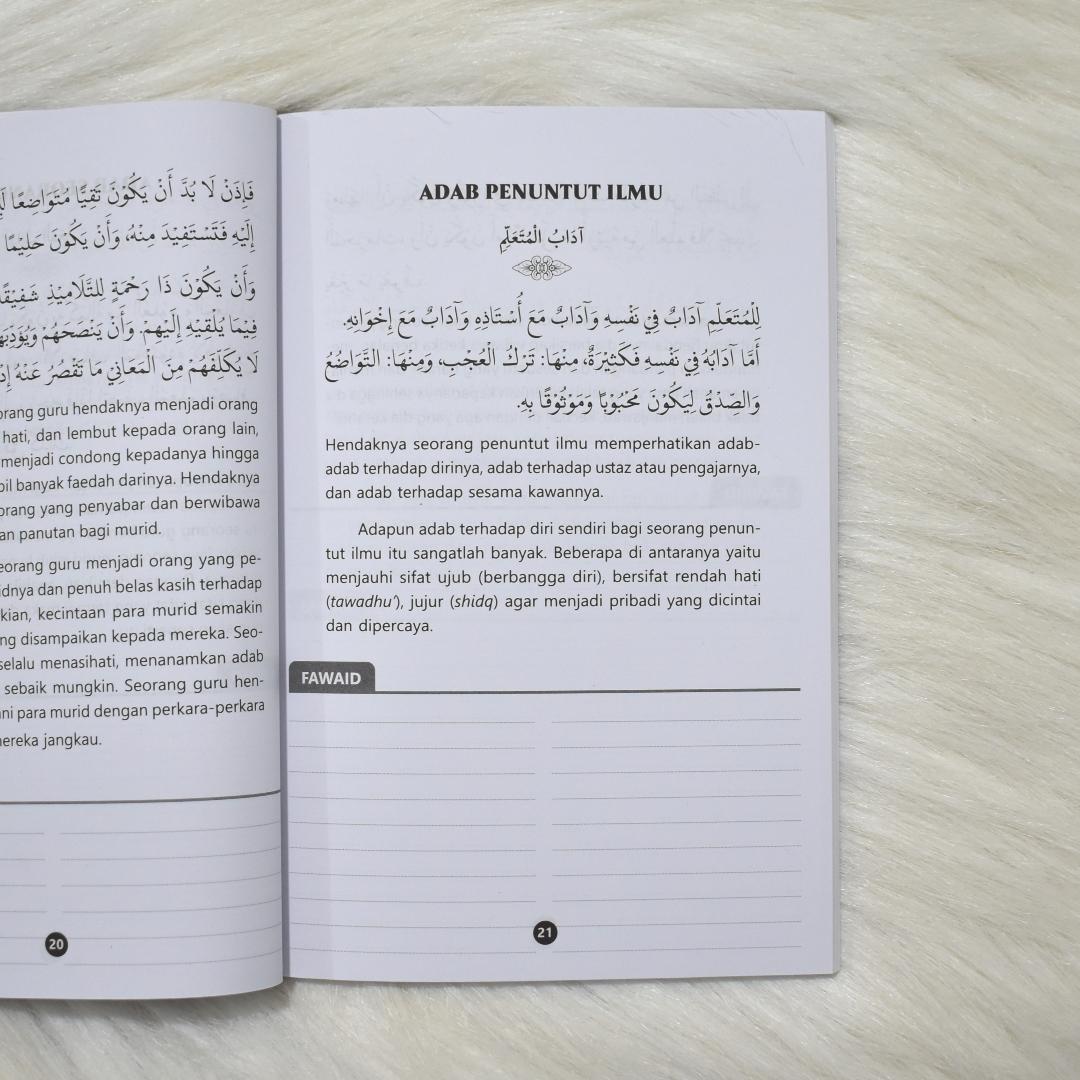 فَإِذَنْ لَا بُدَّ أَنْ يَكُوْنَ تَقِيًّا مُتَوَاضِعًا
إِلَيْهِ فَتَسْتَفِيْدَ مِنْهُ، وَأَنْ يَكُوْنَ حَلِيْمًا
وَأَنْ يَكُوْنَ ذَا رَحْمَةٍ لِلتَّلَامِيْذِ شَفِيْقًا
فِيْمَا يُلْقِيْهِ إِلَيْهِمْ. وَأَنْ يَنْصَحَهُمْ
لَا يُكَلِّفَهُمْ مِنَ الْمَعَانِي مَا تَقْصُرُ عَنْهُ
orang guru hendaknya menjadi orang
hati, dan lembut kepada orang lain,
menjadi condong kepadanya hingga
bil banyak faedah darinya. Hendaknya
orang yang penyabar dan berwibawa
an panutan bagi murid.
eorang guru menjadi orang yang pe-
idnya dan penuh belas kasih terhadap
kian, kecintaan para murid semakin
ng disampaikan kepada mereka. Seo-
selalu menasihati, menanamkan adab
sebaik mungkin. Seorang guru hen-
ni para murid dengan perkara-perkara
mereka jangkau.
20
ADAB PENUNTUT ILMU
آدَابُ الْمُتَعَلِّمِ
لِلْمُتَعَلِّمِ آدَابٌ فِي نَفْسِهِ وَآدَابٌ مَعَ أُسْتَاذِهِ وَآدَابٌ مَعَ إِخْوَانِهِ.
أَمَّا آدَابُهُ فِي نَفْسِهِ فَكَثِيْرَةٌ، مِنْهَا: تَرْكُ الْعُجْبِ، وَمِنْهَا: التَّوَاضُعُ
وَالصِّدْقُ لِيَكُوْنَ مَحْبُوْبًا وَمَوْثُوْقًا بِهِ.
Hendaknya seorang penuntut ilmu memperhatikan adab-
adab terhadap dirinya, adab terhadap ustaz atau pengajarnya,
dan adab terhadap sesama kawannya.
Adapun adab terhadap diri sendiri bagi seorang penun-
tut ilmu itu sangatlah banyak. Beberapa di antaranya yaitu
menjauhi sifat ujub (berbangga diri), bersifat rendah hati
(tawadhu'), jujur (shidq) agar menjadi pribadi yang dicintai
dan dipercaya.
FAWAID
21